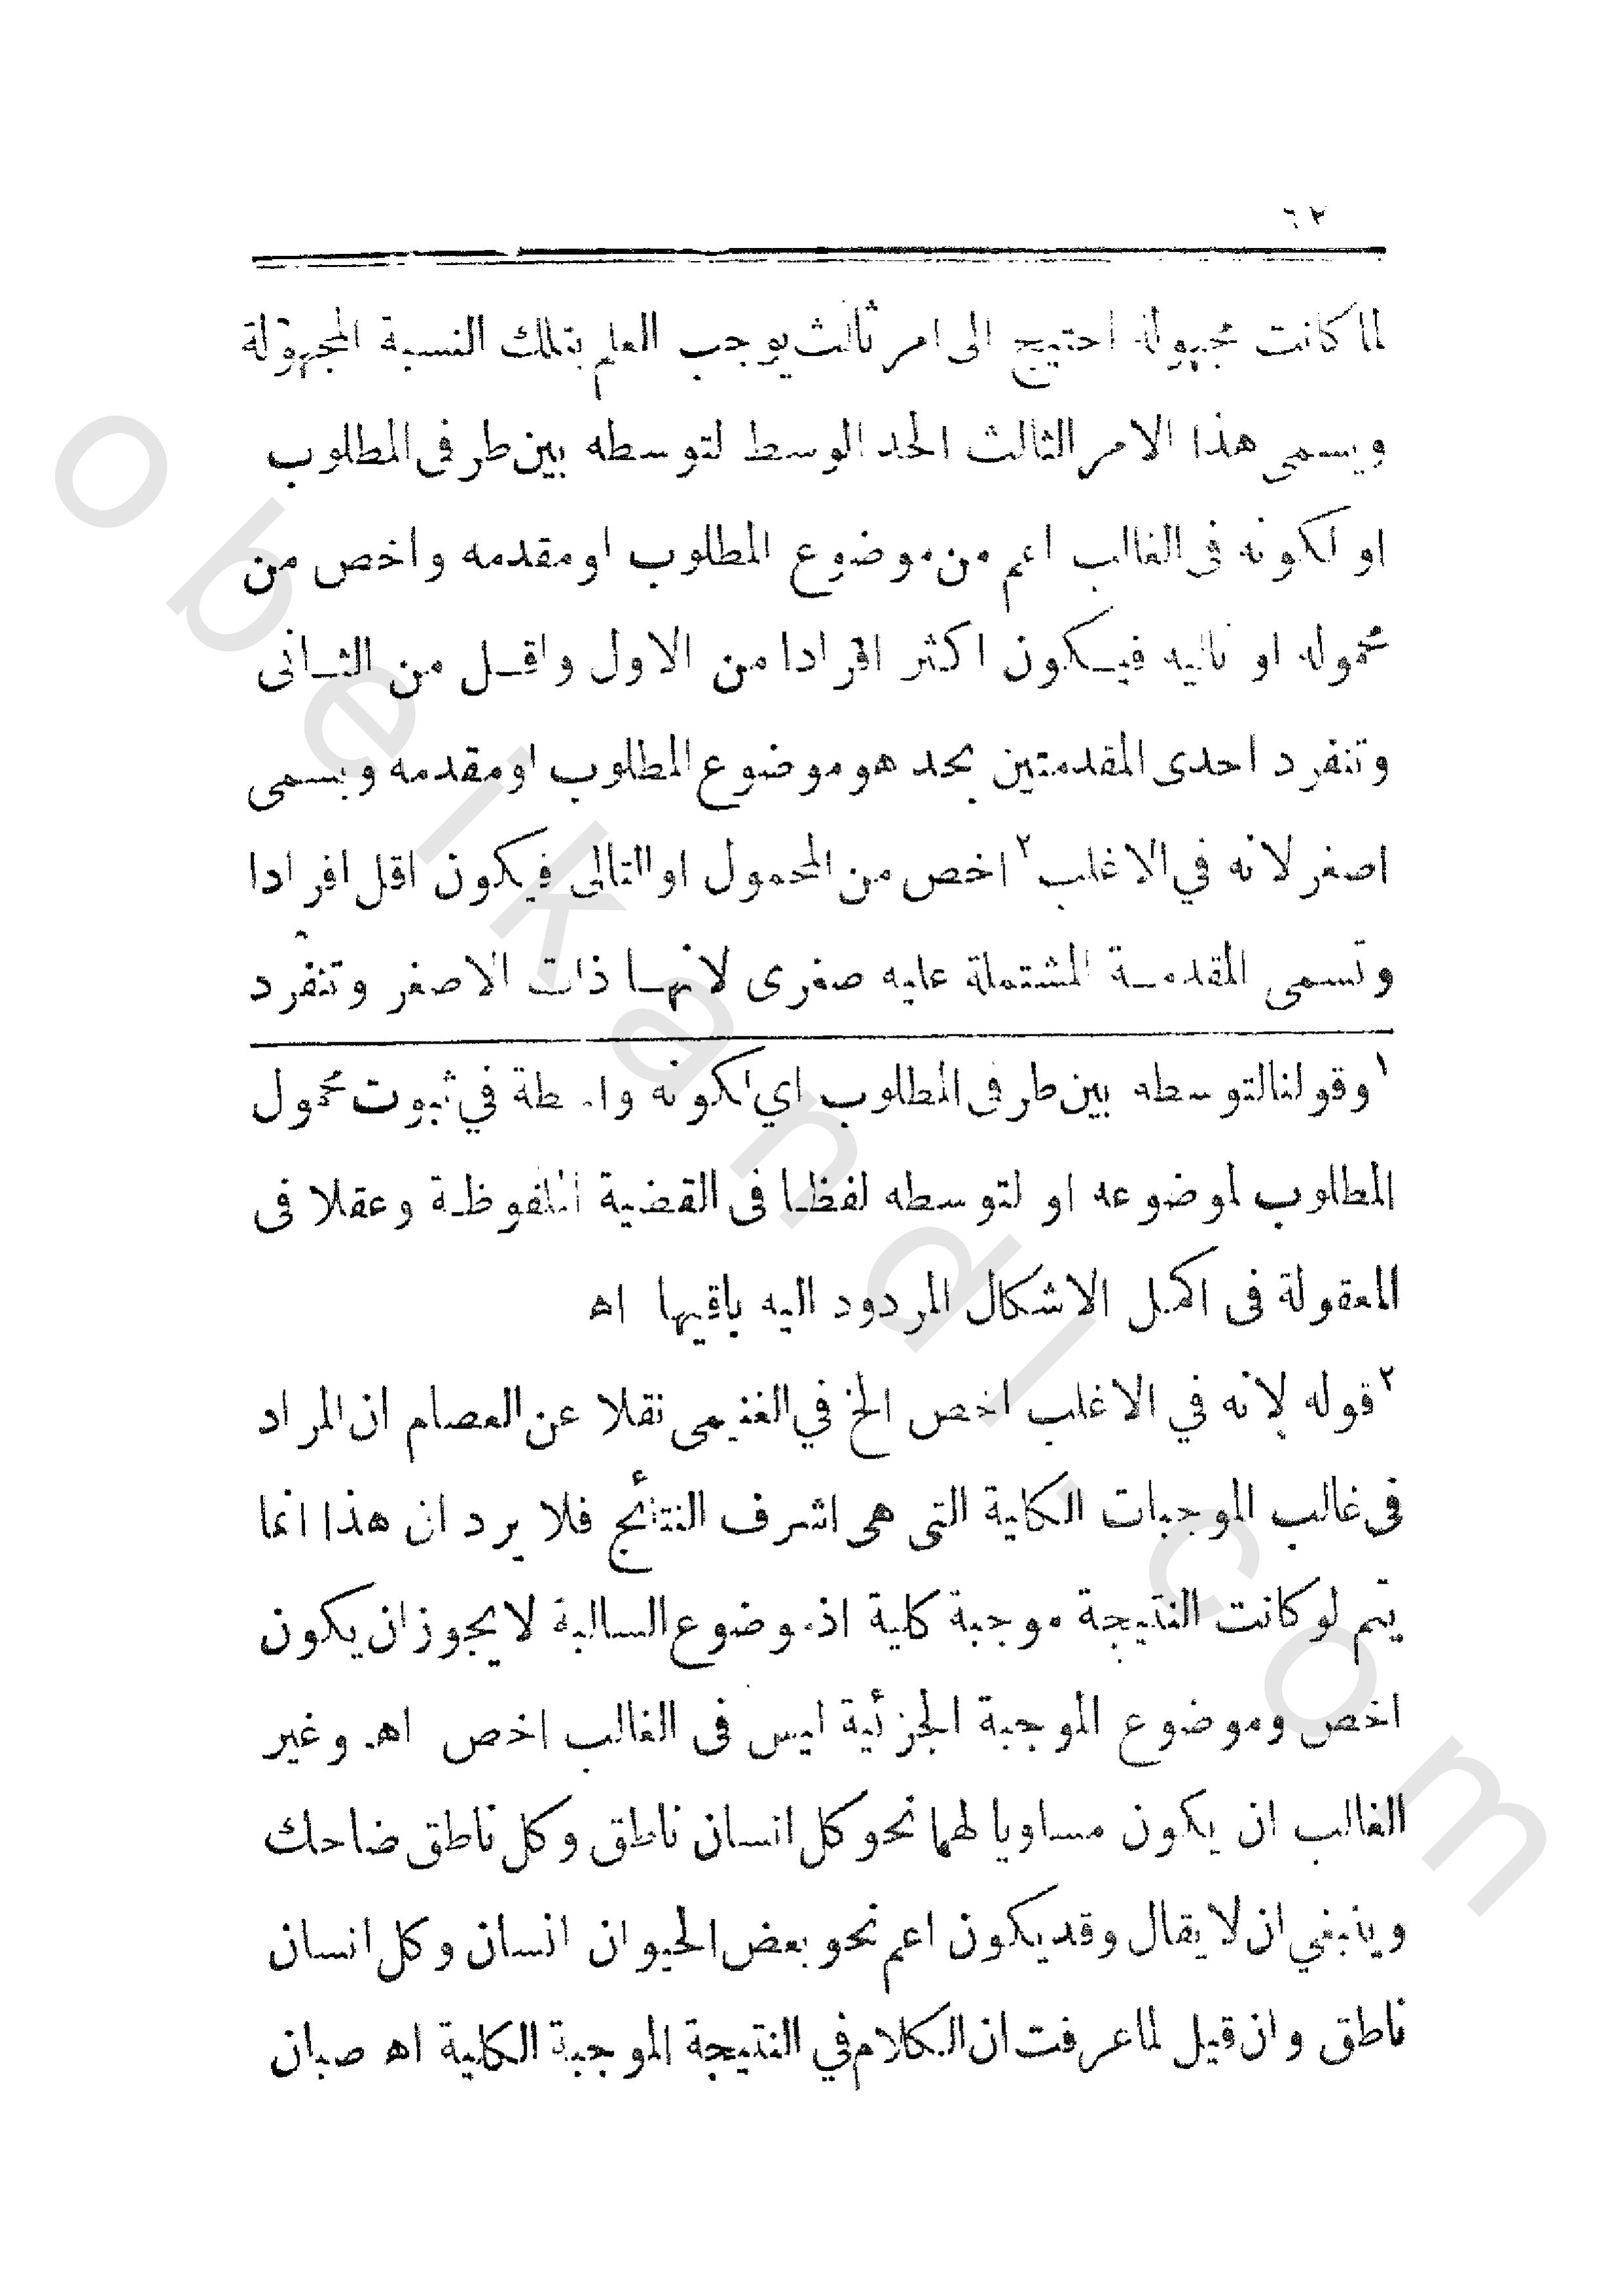 ٦٢
لما كانت مجهولة احتيج الى امر ثالث يوجب العلم بتلك النسبة المجهولة
ويسمى هذا الامر الثالث الحد الوسط لتوسطه بين طرفى المطلوب
او لكونه فى الغالب اعم من موضوع المطلوب او مقدمه واخص من
محموله او تاليه فيكون اكثر افرادا من الاول واقل من الثانى
وتنفرد احدى المقدمتين بحد هو موضوع المطلوب او مقدمه ويسمى
اصغر لانه في الاغلب ٢ اخص من المحمول او التالى فيكون اقل افرادا
وتسمى المقدمة المشتملة عليه صغرى لانها ذات الاصغر وتنفرد
١ وقولنا لتوسطه بين طرفى المطلوب اي لكونه واسطة في ثبوت محمول
المطلوب لموضوعه او لتوسطه لفظا فى القضية الملفوظة وعقلا فى
المعقولة فى اكمل الاشكال المردود اليه باقيها اه
٢ قوله لانه في الاغلب اخص الخ في الغنيمى نقلا عن العصام ان المراد
فى غالب الموجبات الكلية التى هى اشرف النتائج فلا يرد ان هذا انما
يتم لو كانت النتيجة موجبة كلية اذ موضوع السالبة لا يجوز ان يكون
اخص وموضوع الموجبة الجزئية ليس فى الغالب اخص اه وغير
الغالب ان يكون مساويا لهما نحو كل انسان ناطق وكل ناطق ضاحك
وينبغي ان لا يقال وقد يكون اعم نحو بعض الحيوان انسان وكل انسان
ناطق وان قيل لما عرفت ان الكلام في النتيجة الموجبة الكلية اه صبان
obeikandl.com